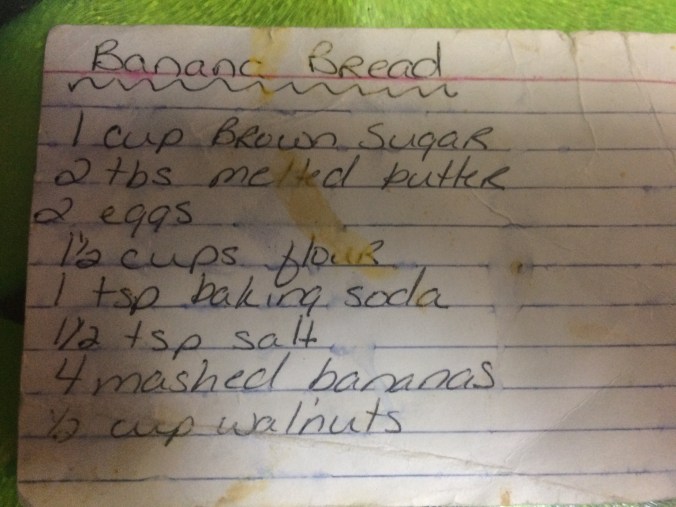 Banana Bread
1 cup Brown Sugar
2 tbs melted butter
2 eggs
1½ cups flour
1 tsp baking soda
1/2 tsp salt
4 mashed bananas
½ cup walnuts